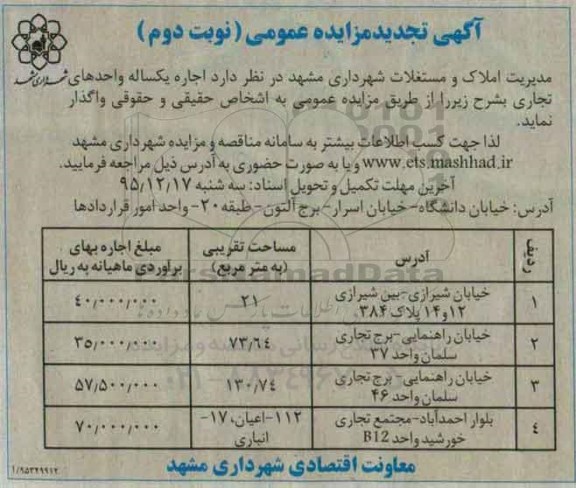 آگهی تجدیدمزایده عمومی (نوبت دوم)
شهرداری مشهد
مدیریت املاک و مستغلات شهرداری مشهد در نظر دارد اجاره یکساله واحدهای
تجاری بشرح زیررا از طریق مزایده عمومی به اشخاص حقیقی و حقوقی واگذار
نماید.
لذا جهت کسب اطلاعات بیشتر به سامانه مناقصه و مزایده شهرداری مشهد
www.ets.mashhad.ir و یا به صورت حضوری به آدرس ذیل مراجعه فرمایید.
آخرین مهلت تکمیل و تحویل اسناد: سه شنبه ۹۵,۱۲,۱۷
آدرس: خیابان دانشگاه- خیابان اسرار- برج آلتون- طبقه ۲۰- واحد امور قراردادها
ردیف آدرس مساحت تقریبی (به متر مربع) مبلغ اجاره بهای برآوردی ماهیانه به ریال
۱ خیابان شیرازی-بین شیرازی ۱۲و۱۴ پلاک ۳۸۴ ۲۱ ۴۰,۰۰۰,۰۰۰
۲ خیابان راهنمایی-برج تجاری سلمان واحد ۳۷ ۷۳,۶۴ ۳۵,۰۰۰,۰۰۰
۳ خیابان راهنمایی-برج تجاری سلمان واحد ۴۶ ۱۳۰,۷۴ ۵۷,۵۰۰,۰۰۰
۴ بلوار احمدآباد-مجتمع تجاری خورشید واحد B12 ۱۱۲-اعیان، ۱۷-انباری ۷۰,۰۰۰,۰۰۰
معاونت اقتصادی شهرداری مشهد
۱/۹۵۳۲۹۹۱۲